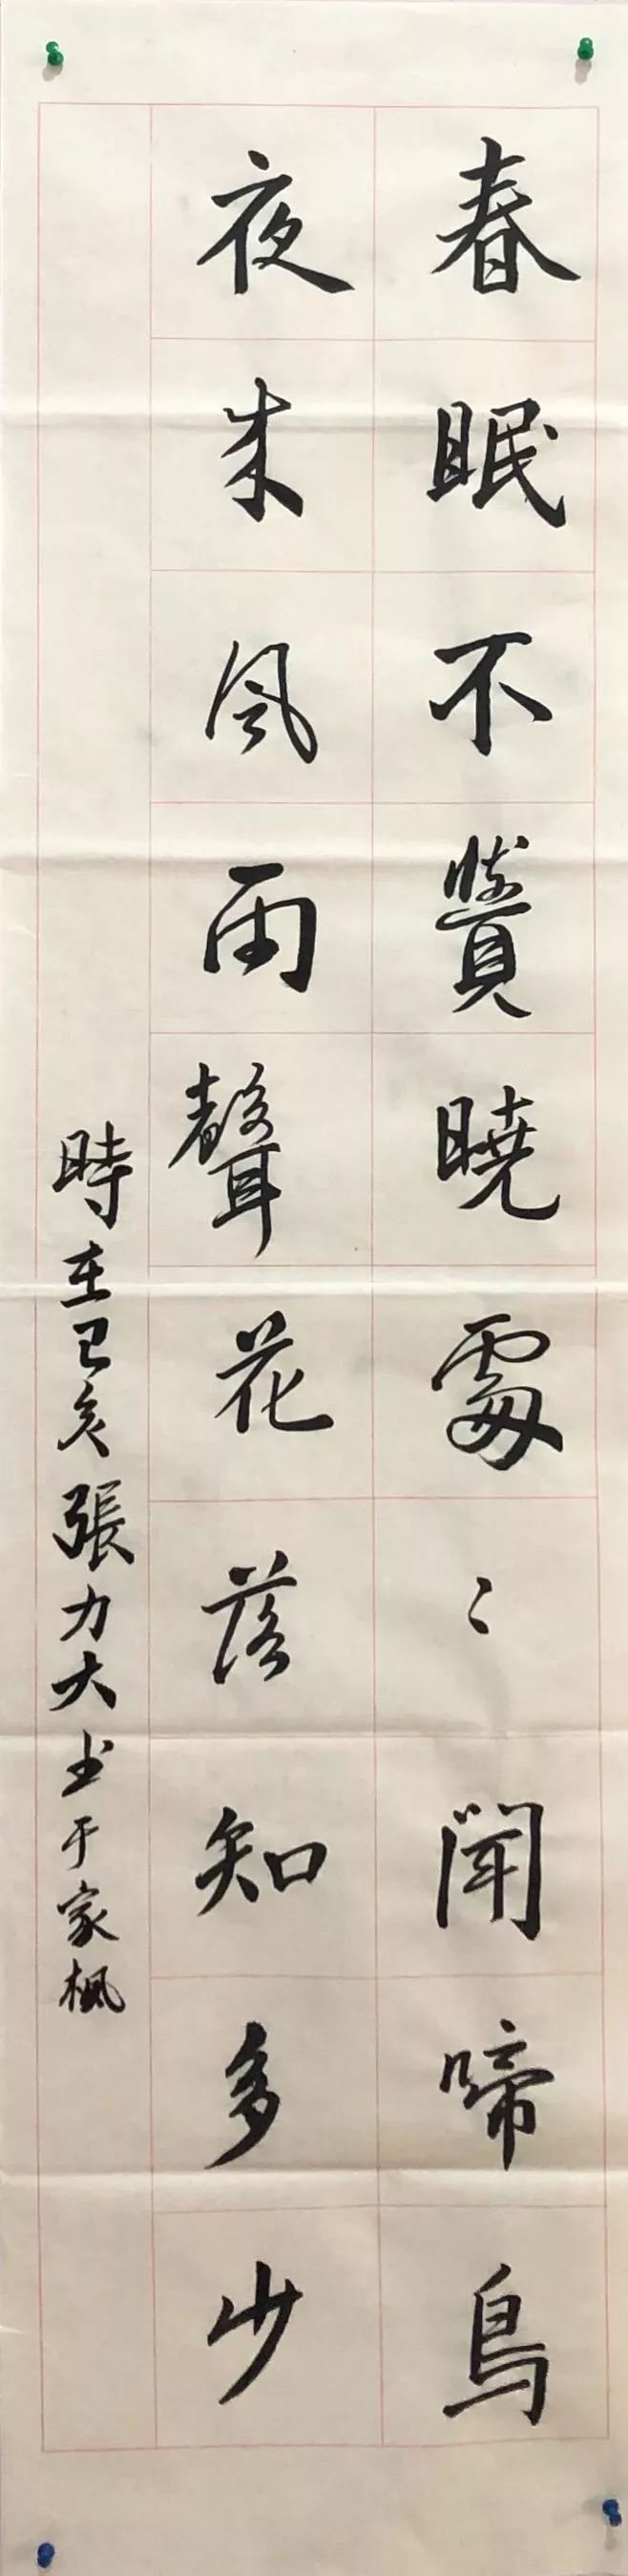 春眠不覺曉處〻聞啼鳥
夜来風雨聲花落知多少
時在己亥張力大书于家楓